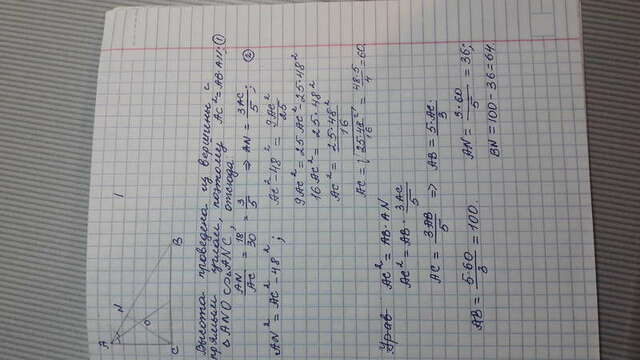 A
N
1
O
C
B
Высота проведена из вершины с
прямым углом, поэтому AC² = AB·AN; ①
△ANO ∽ △ANC, отсюда
AN/AC = 18/30 = 3/5 ⇒ AN = 3AC/5; ②
AN² = AC² - 48²; AC² - 48² = 9AC²/25
9AC² = 25AC² - 25·48²
16AC² = 25·48²
AC² = 25·48²/16
AC = √(25·48²/16) = 48·5/4 = 60.
AC² = AB·AN
AC² = AB·3AC/5
AC = 3AB/5 ⇒ AB = 5·AC/3
AB = 5·60/3 = 100. AN = 3·60/5 = 36;
BN = 100 - 36 = 64.